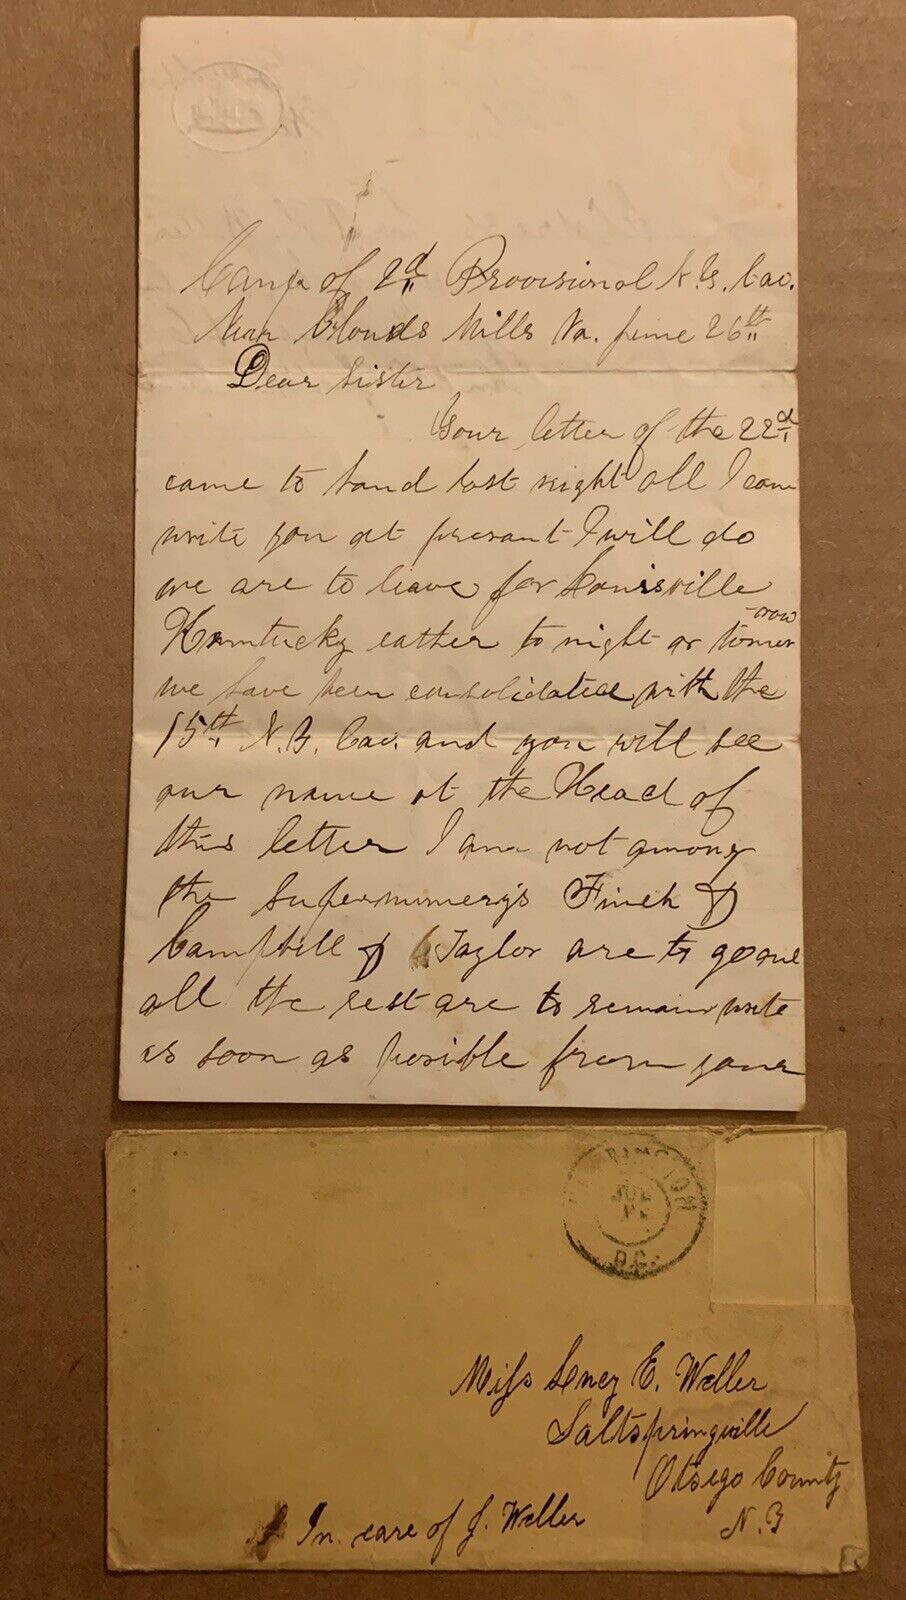 Camp of 2d Provisional N.Y. Cav.
Near Clouds Mills Va. June 26th
Dear Sister
Your letter of the 22d
came to hand last night all I can
write you at presant I will do
we are to leave for Louisville
Kentucky eather to night or tomor
-row
we have been consolidated with the
15th N.Y. Cav. and you will see
our name at the Head of
this letter I am not among
the supernumery's Finch &
Campbell & Taylor are to go and
all the rest are to remain write
as soon as posible from your
WASHINGTON
D.C.
Miss Lucy E. Weller
Saltspringville
Otsego County
N.Y
In care of J. Weller